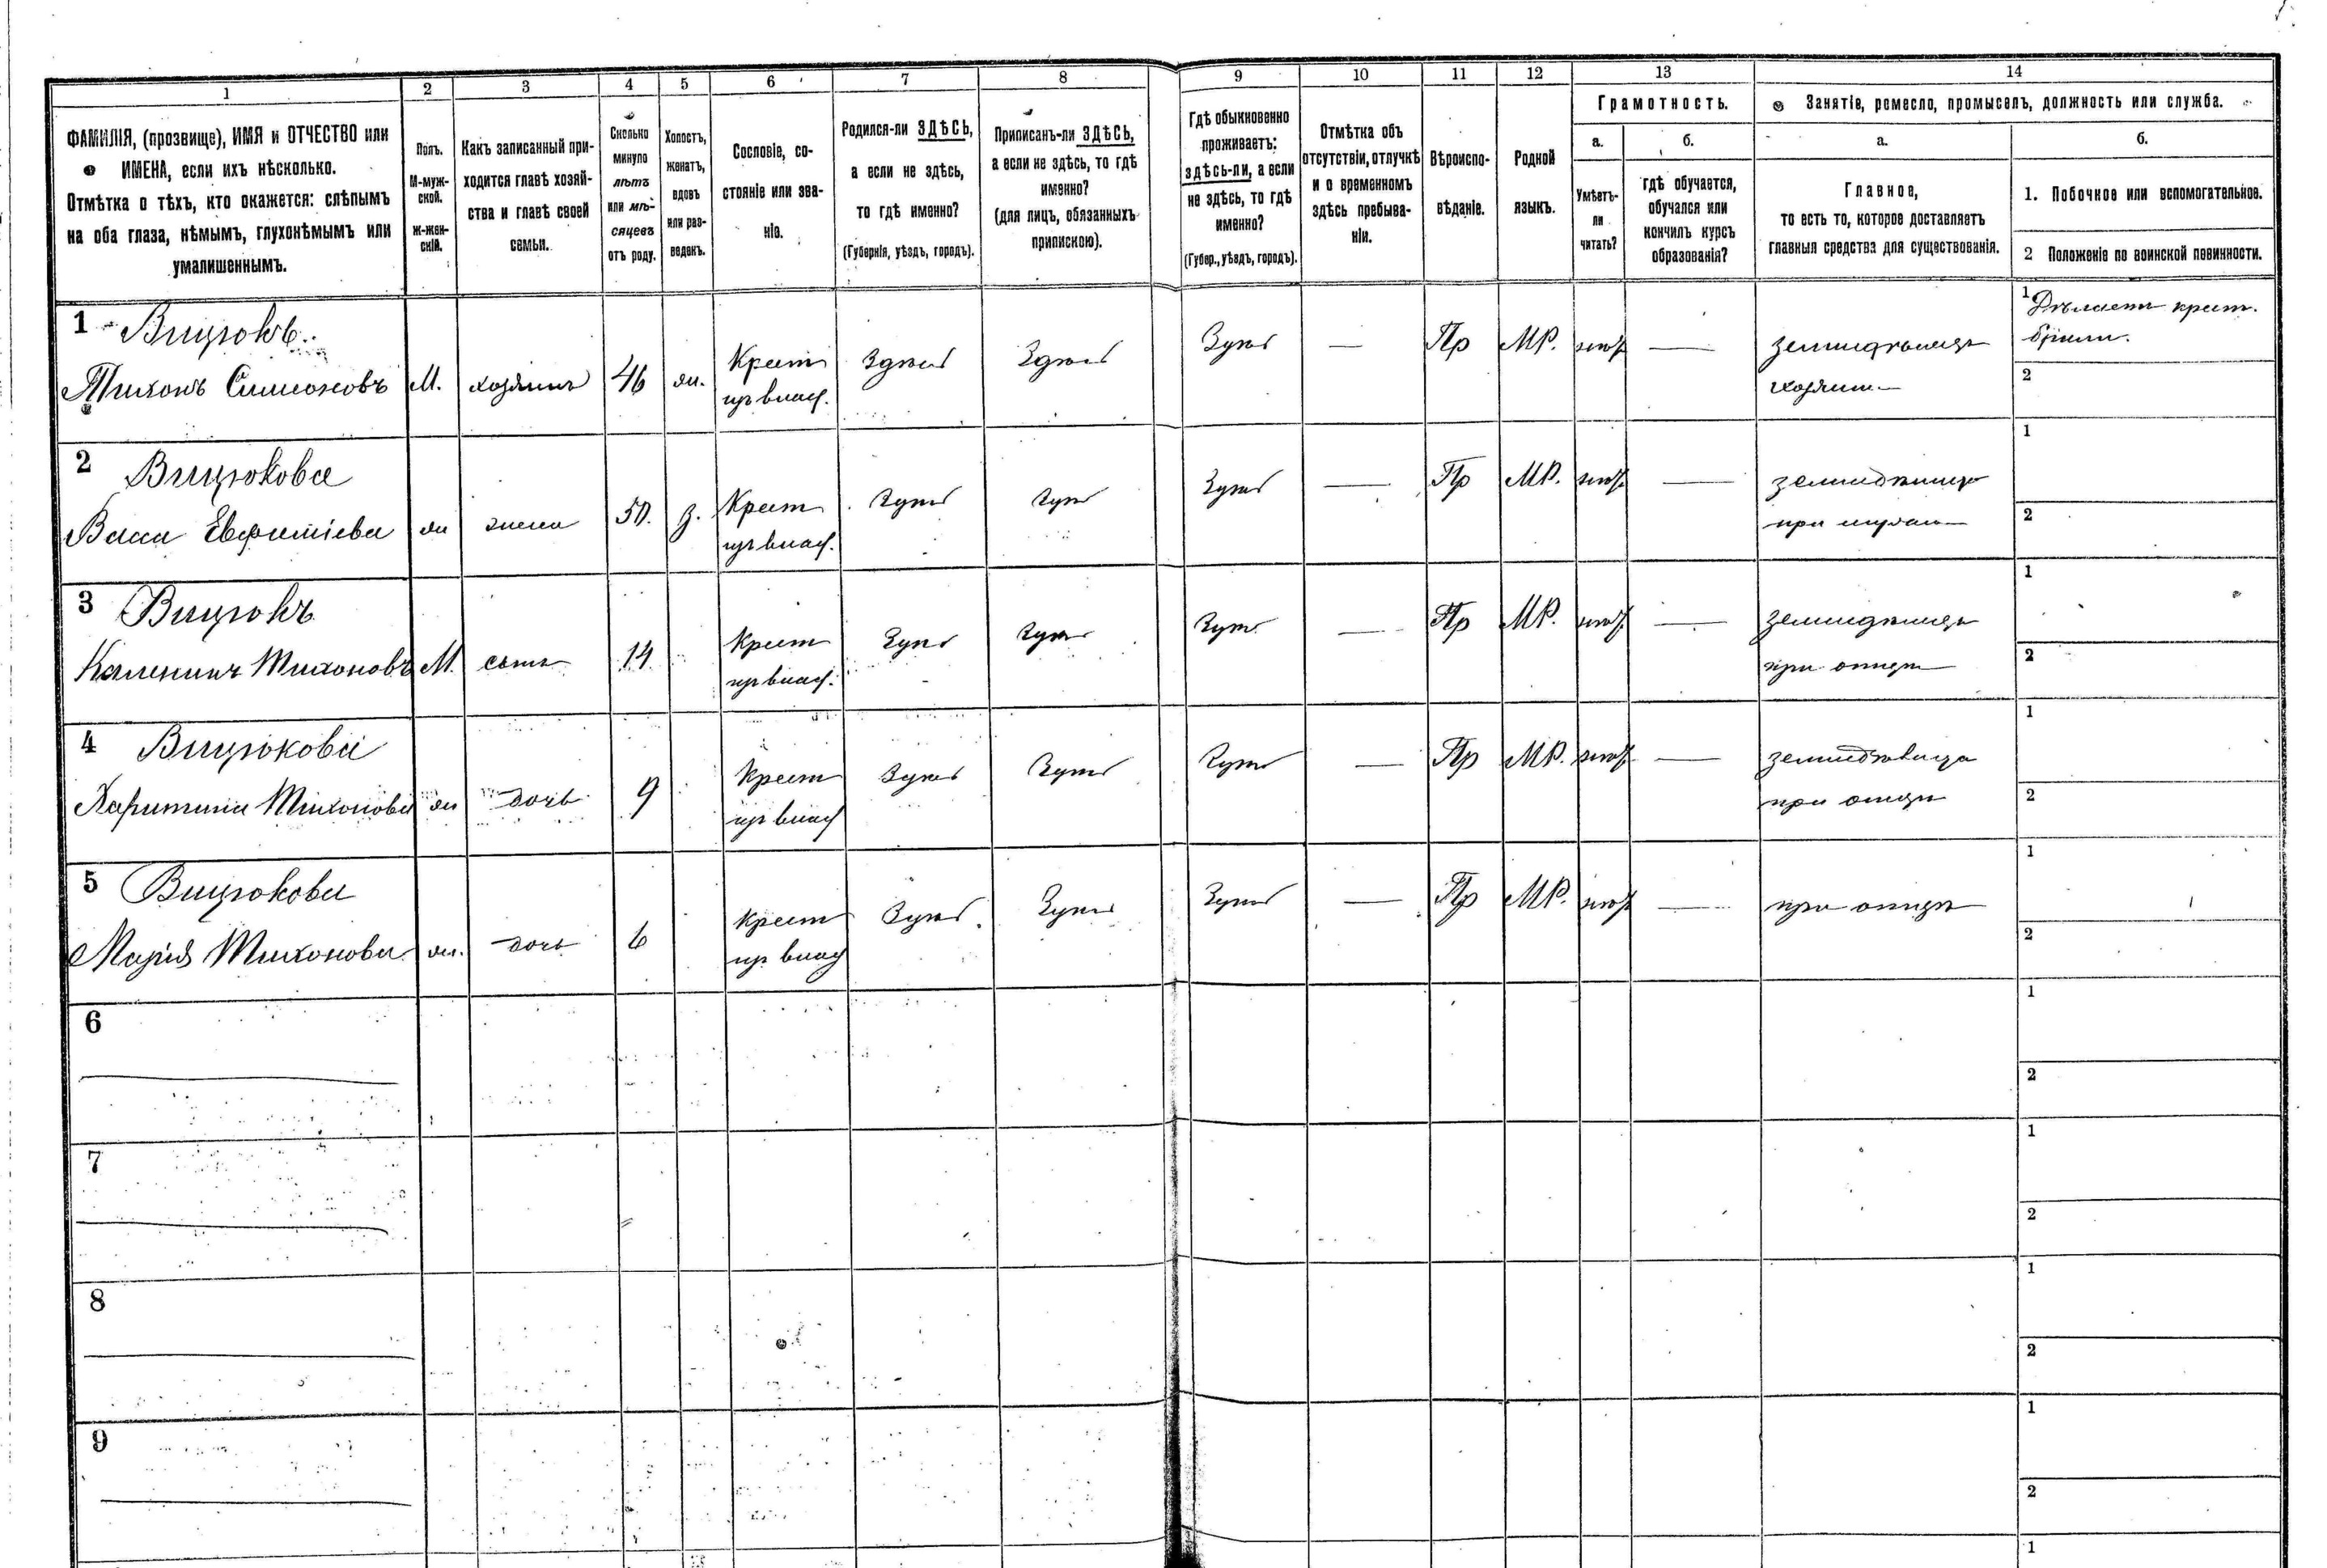 1 2 3 4 5 6 7 8 9 10 11 12 13 14
ФАМИЛІЯ, (прозвище), ИМЯ и ОТЧЕСТВО или
ИМЕНА, если ихъ нѣсколько.
Отмѣтка о тѣхъ, кто окажется: слѣпымъ
на оба глаза, нѣмымъ, глухонѣмымъ или
умалишеннымъ.
Полъ.
М-муж-
ской.
Ж-жен-
скій.
Какъ записанный при-
ходится главѣ хозяй-
ства и главѣ своей
семьи.
Сколько
минуло
лѣтъ
или мѣ-
сяцевъ
отъ роду.
Холостъ,
женатъ,
вдовъ
или раз-
веденъ.
Сословіе, со-
стояніе или зва-
ніе.
Родился-ли ЗДѢСЬ,
а если не здѣсь,
то гдѣ именно?
(Губернія, уѣздъ, городъ).
Приписанъ-ли ЗДѢСЬ,
а если не здѣсь, то гдѣ
именно?
(для лицъ, обязанныхъ
припискою).
Гдѣ обыкновенно
проживаетъ:
здѣсь-ли, а если
не здѣсь, то гдѣ
именно?
(Губер., уѣздъ, городъ).
Отмѣтка объ
отсутствіи, отлучкѣ
и о временномъ
здѣсь пребыва-
ніи.
Вѣроиспо-
вѣданіе.
Родной
языкъ.
Грамотность.
а.
Умѣетъ-
ли
читать?
б.
гдѣ обучается,
обучался или
кончилъ курсъ
образованія?
Занятіе, ремесло, промыселъ, должность или служба.
а.
Главное,
то есть то, которое доставляетъ
главныя средства для существованія.
б.
1. Побочное или вспомогательное.
2 Положеніе по воинской повинности.
1 Вицюкъ
Тихонъ Симеоновъ М. хозяинъ 46 ж. Крест Здѣсь Здѣсь Здѣсь — Пр МР. — земледѣлецъ
хозяинъ
1 Дѣлаетъ крест.
2
2 Вицюкова
Васса Евфиміева ж жена 50. з. Крест Здѣсь Здѣсь Здѣсь — Пр МР. —
при мужѣ
1
2
3 Вицюкъ
Каленикъ Тихоновъ М. сынъ 14 Крест Здѣсь Здѣсь Здѣсь — Пр МР. — земледѣлецъ
при отцѣ
1
2
4 Вицюкова
Харитина Тихонова ж дочь 9 Крест Здѣсь Здѣсь Здѣсь — Пр МР. —
при отцѣ
1
2
5 Вицюкова
Марія Тихонова ж. дочь 6 Крест Здѣсь Здѣсь Здѣсь — Пр МР. — при отцѣ
1
2
6
1
2
7
1
2
8
1
2
9
1
2
1